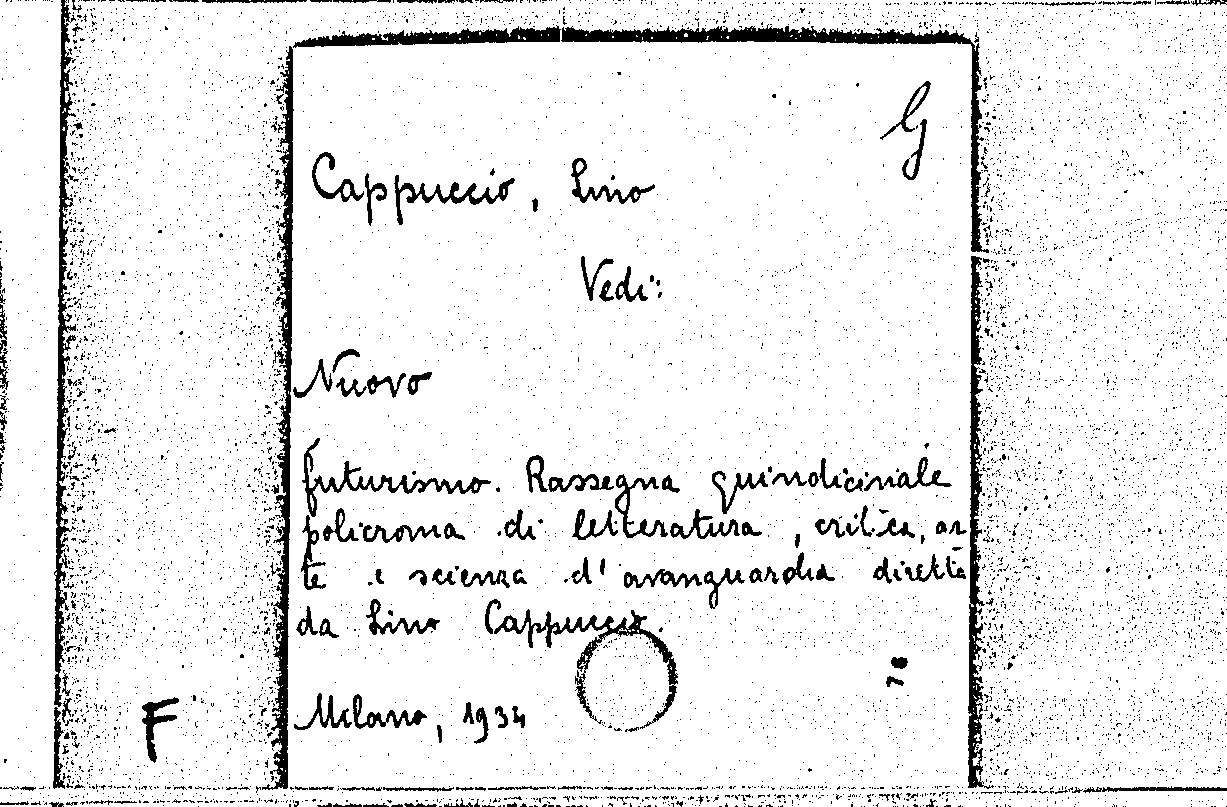 G
Cappuccio, Lino
Vedi:
Nuovo
futurismo. Rassegna quindicinale
policroma di letteratura, critica, ar
te e scienza d'avanguardia diretta
da Lino Cappuccio.
78
Milano, 1934
F